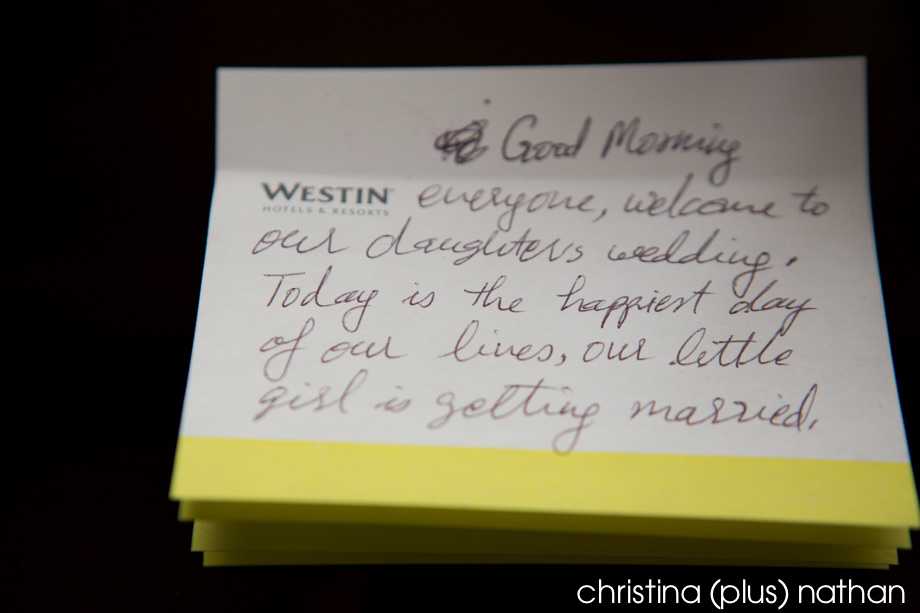 Good Morning
WESTIN®
HOTELS & RESORTS
everyone, welcome to
our daughters wedding.
Today is the happiest day
of our lives, our little
girl is getting married.
christina (plus) nathan